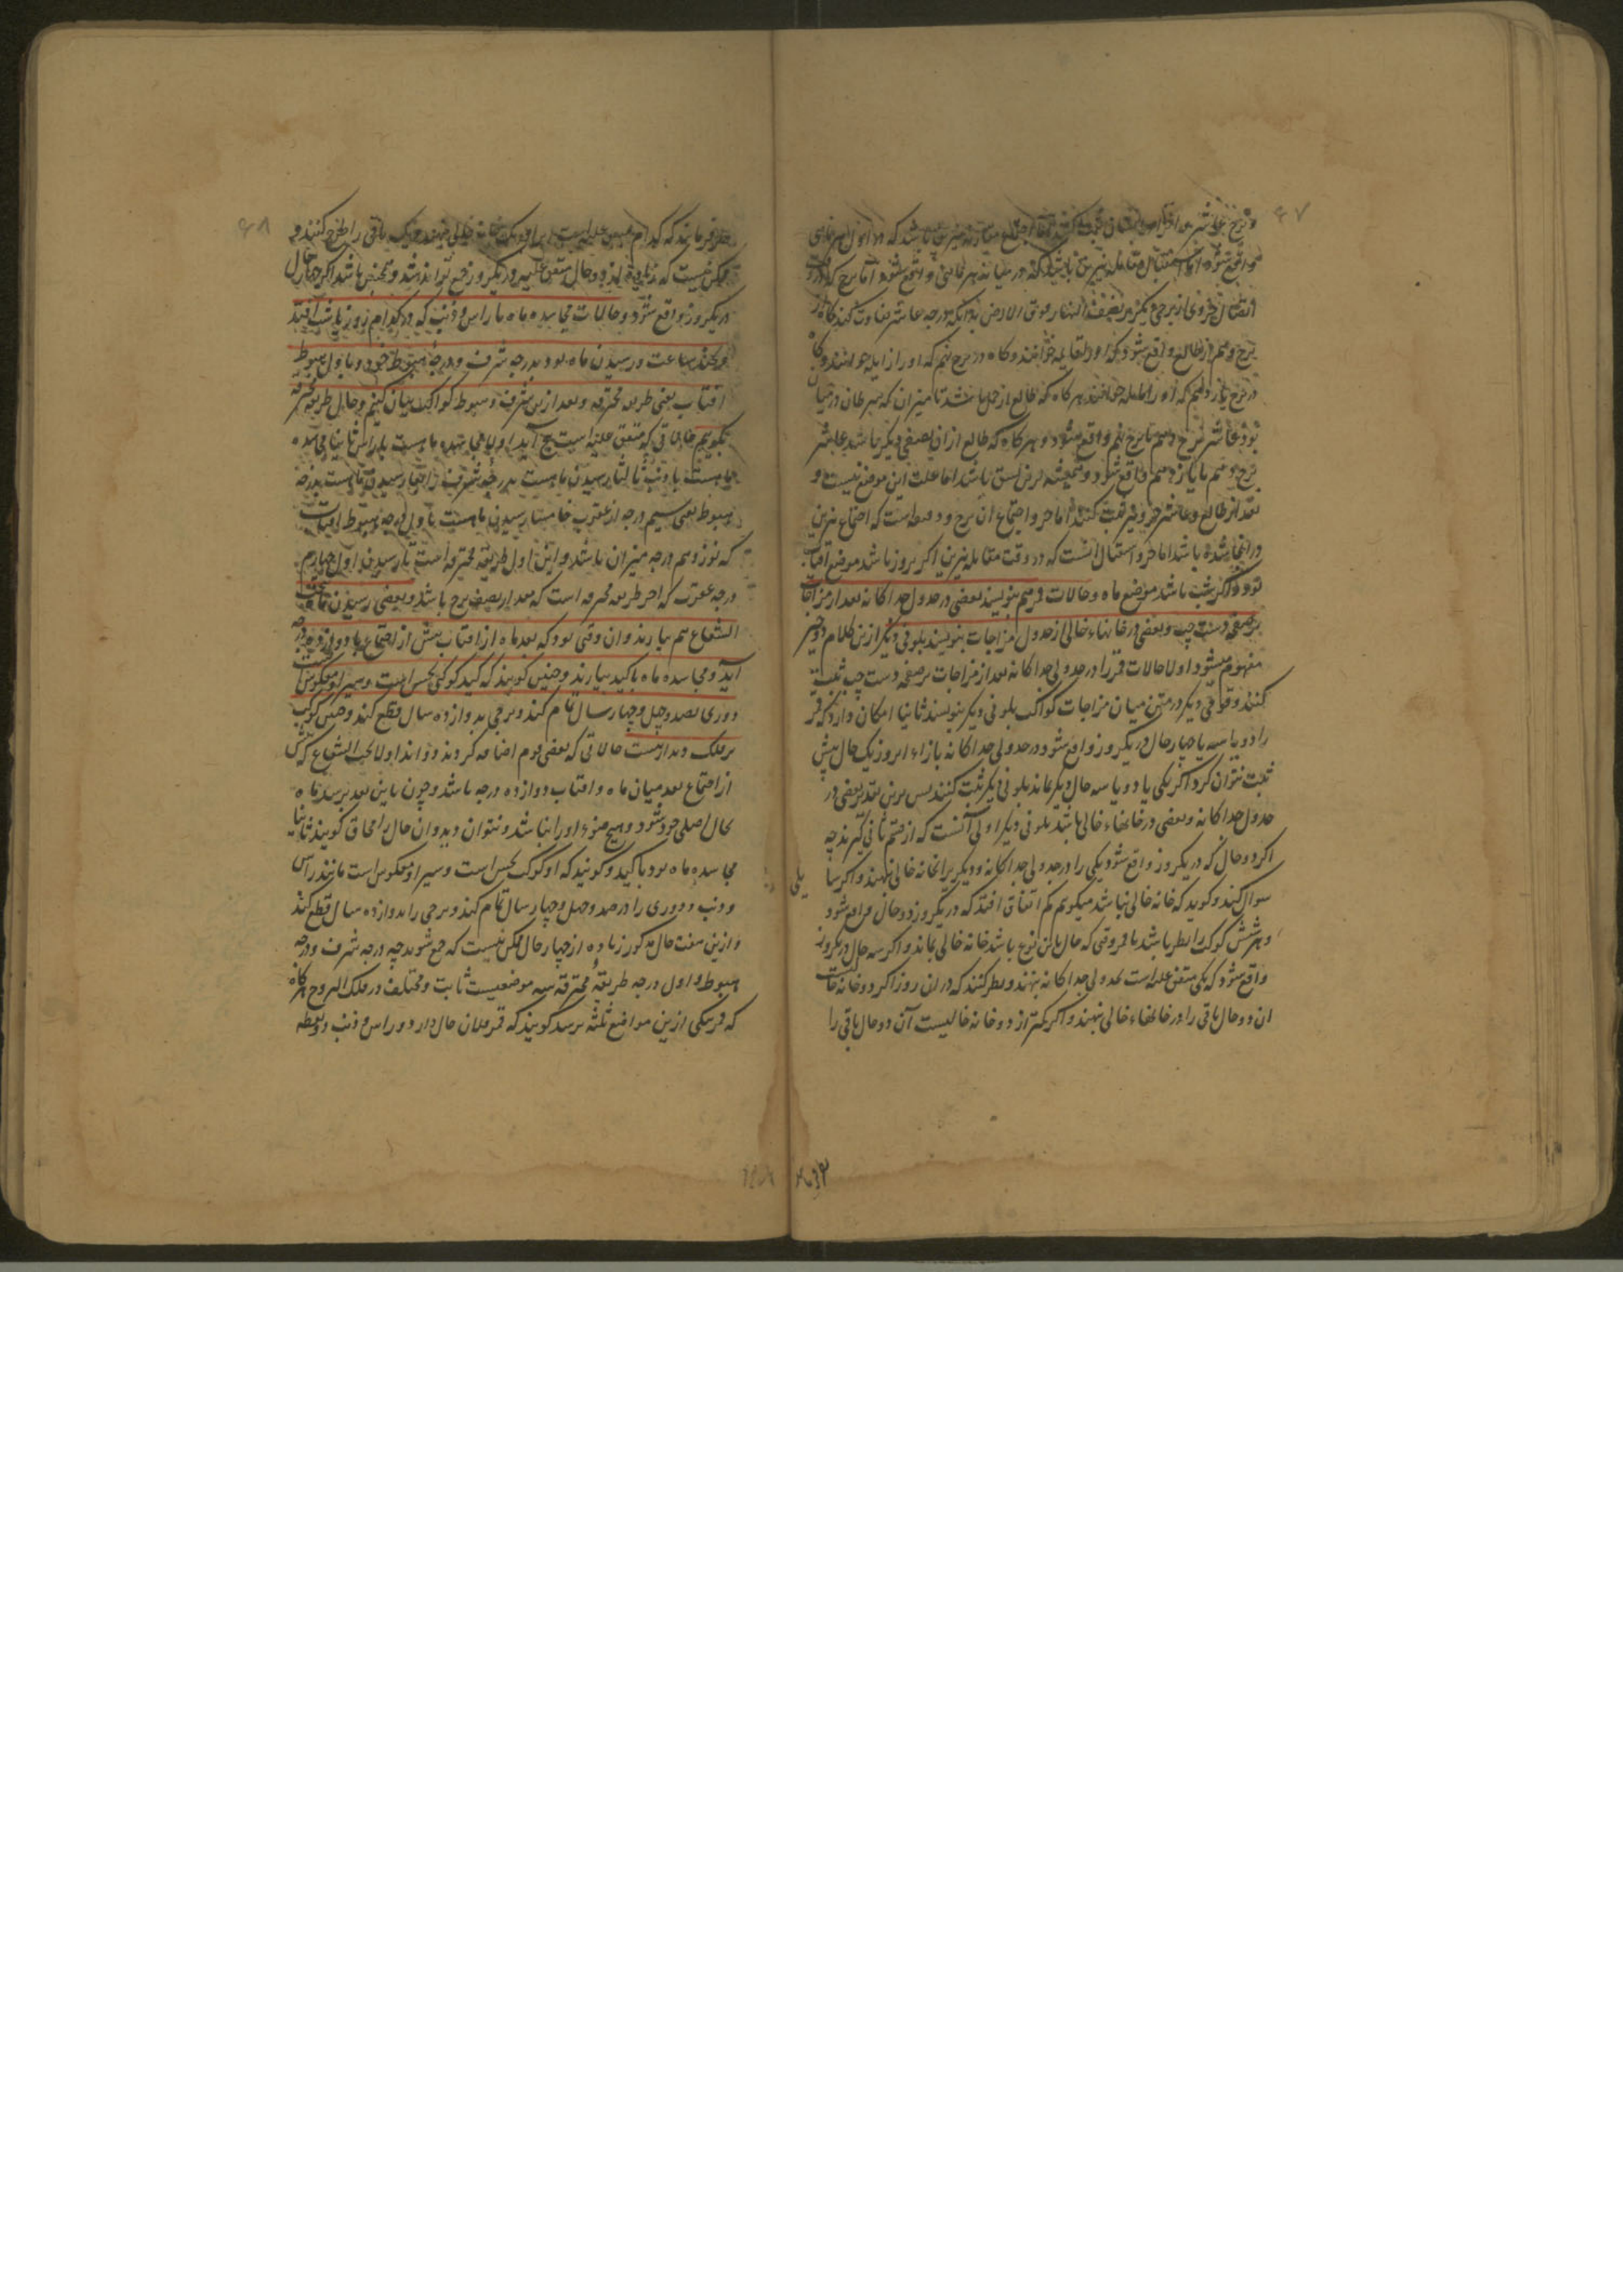 ۶۷
واقع شود اما استقبال مقابله نیرین باشد
برج دهم از طالع واقع شود و گاه در برج نهم که او را زایله خوانند و گاه
در برج یازدهم که او را مایله خوانند هرگاه که طالع از حمل باشد تا میزان که سرطان در میان
بود عاشر برج دهم یا برج نهم واقع شود و هرگاه که طالع از آن نصف دیگر باشد عاشر
برج دهم یا یازدهم واقع شود و همیشه برین نسق باشد اما علت این موضع نیست و
بعد از طالع و عاشر جزو نیز ثبت کنند اما جزو اجتماع آن برج و دقیقه است که اجتماع نیرین
در آنجا شده باشد اما جزو استقبال آنست که در وقت مقابله نیرین اگر بروز باشد موضع آفتاب
بود و اگر شب باشد موضع ماه و حالات قمر هم بنویسند بعضی در جدول جداگانه بعد از مزاجات
بر صفحه دست چپ و بعضی در خانهاء خالی از جدول مزاجات بنویسند بلونی دیگر ازین کلام دو چیز
مفهوم میشود اولا حالات قمر را در جدولی جداگانه بعد از مزاجات بر صفحه دست چپ ثبت
کنند و قومی دیگر در متن میان مزاجات کواکب بلونی دیگر بنویسند ثانیا امکان دارد که قمر
را دو یا سه یا چهار حال در یکروز واقع شود و در جدولی جداگانه بازاء آن روز یک حال بیش
ثبت نتوان کرد اگر یکی یا دو یا سه حال دیگر بماند بلونی دیگر ثبت کنند پس برین تقدیر بعضی در
جدول جداگانه و بعضی در خانهاء خالی باشد بلونی دیگر اولی آنست که از قسم ثانی گیرند چه
اگر دو حال که در یکروز واقع شود یکی را در جدولی جداگانه و دیگر را بخانه خالی نهند و اگر سا
سوال کند و گوید که خانه خالی نباشد میگویم کم اتفاق افتد که در یکروز دو حال قمر واقع شود
و هر شش کوکب را نظر باشد با قمر وقتی که حال باین نوع باشد خانه خالی نماند و اگر سه حال در یکروز
واقع شود که یکی متفق علیه است بجدولی جداگانه بنهند و نظر کنند که در آن روز اگر دو خانه خالیست
آن دو حال باقی را در خانهاء خالی بنهند و اگر کمتر از دو خانه خالیست آن دو حال باقی را
۶۸
ممکن نیست که زیاده از دو حال متفق علیه در یکروز جمع تواند شد و همچنین باشد اگر چهار حال
در یکروز واقع شود و حالات مجاسده ماه با راس و ذنب که در کدام روز یا شب افتد
و بچند ساعت و رسیدن ماه بود بدرجه شرف و درجه هبوط خود و باول هبوط
آفتاب یعنی طریقه محترقه و بعد ازین شرف و هبوط کواکب بیان کنیم و حال طریقه محترقه
بگوییم حالاتی که متفق علیه است پنج آید اولا مجاسده ماهست با راس ثانیا مجاسده
ماهست با ذنب ثالثا رسیدن ماهست بدرجه شرف رابعا رسیدن ماهست بدرجه
هبوط یعنی سیم درجه از عقرب خامسا رسیدن ماهست باول درجه هبوط آفتاب
که نوزدهم درجه میزان باشد و این اول طریقه محترقه است تا رسیدن اول چهارم
درجه عقرب که آخر طریقه محترقه است که مقدار نصف برج باشد و بعضی رسیدن ماه تحت
الشعاع هم بیارند و آن وقتی بود که بعد ماه از آفتاب پیش از اجتماع با دوازده درجه
آید و مجاسده ماه با کید بیارند و چنین گویند که کید کوکبی نحس است و سیر او معکوس است
دوری بصد و چهل و چهار سال تمام کند و برجی بدوازده سال قطع کند و چنین کوکب
بر فلک پدیدار نیست حالاتی که بعضی قوم اضافه کردند دو اند اولا تحت الشعاع که پیش
از اجتماع بعد میان ماه و آفتاب دوازده درجه باشد و چون باین بعد برسد ماه
بحال اصلی خود شود و هیچ ضوء او را نباشد و نتوان دید و آن حال را محاق گویند ثانیا
مجاسده ماه بود با کید و گویند که او کوکب نحس است و سیر او معکوس است مانند راس
و ذنب و دوری را در صد و چهل و چهار سال تمام کند و برجی را بدوازده سال قطع کند
و ازین هفت حال مذکور زیاده از چهار حال ممکن نیست که جمع شوند چه درجه شرف و درجه
هبوط و اول درجه طریقه محترقه سه موضعیست ثابت و مختلف در فلک البروج هرگاه
که قمر بیکی ازین مواضع ثلثه برسد گویند که قمر فلان حال دارد و راس و ذنب دو نقطه